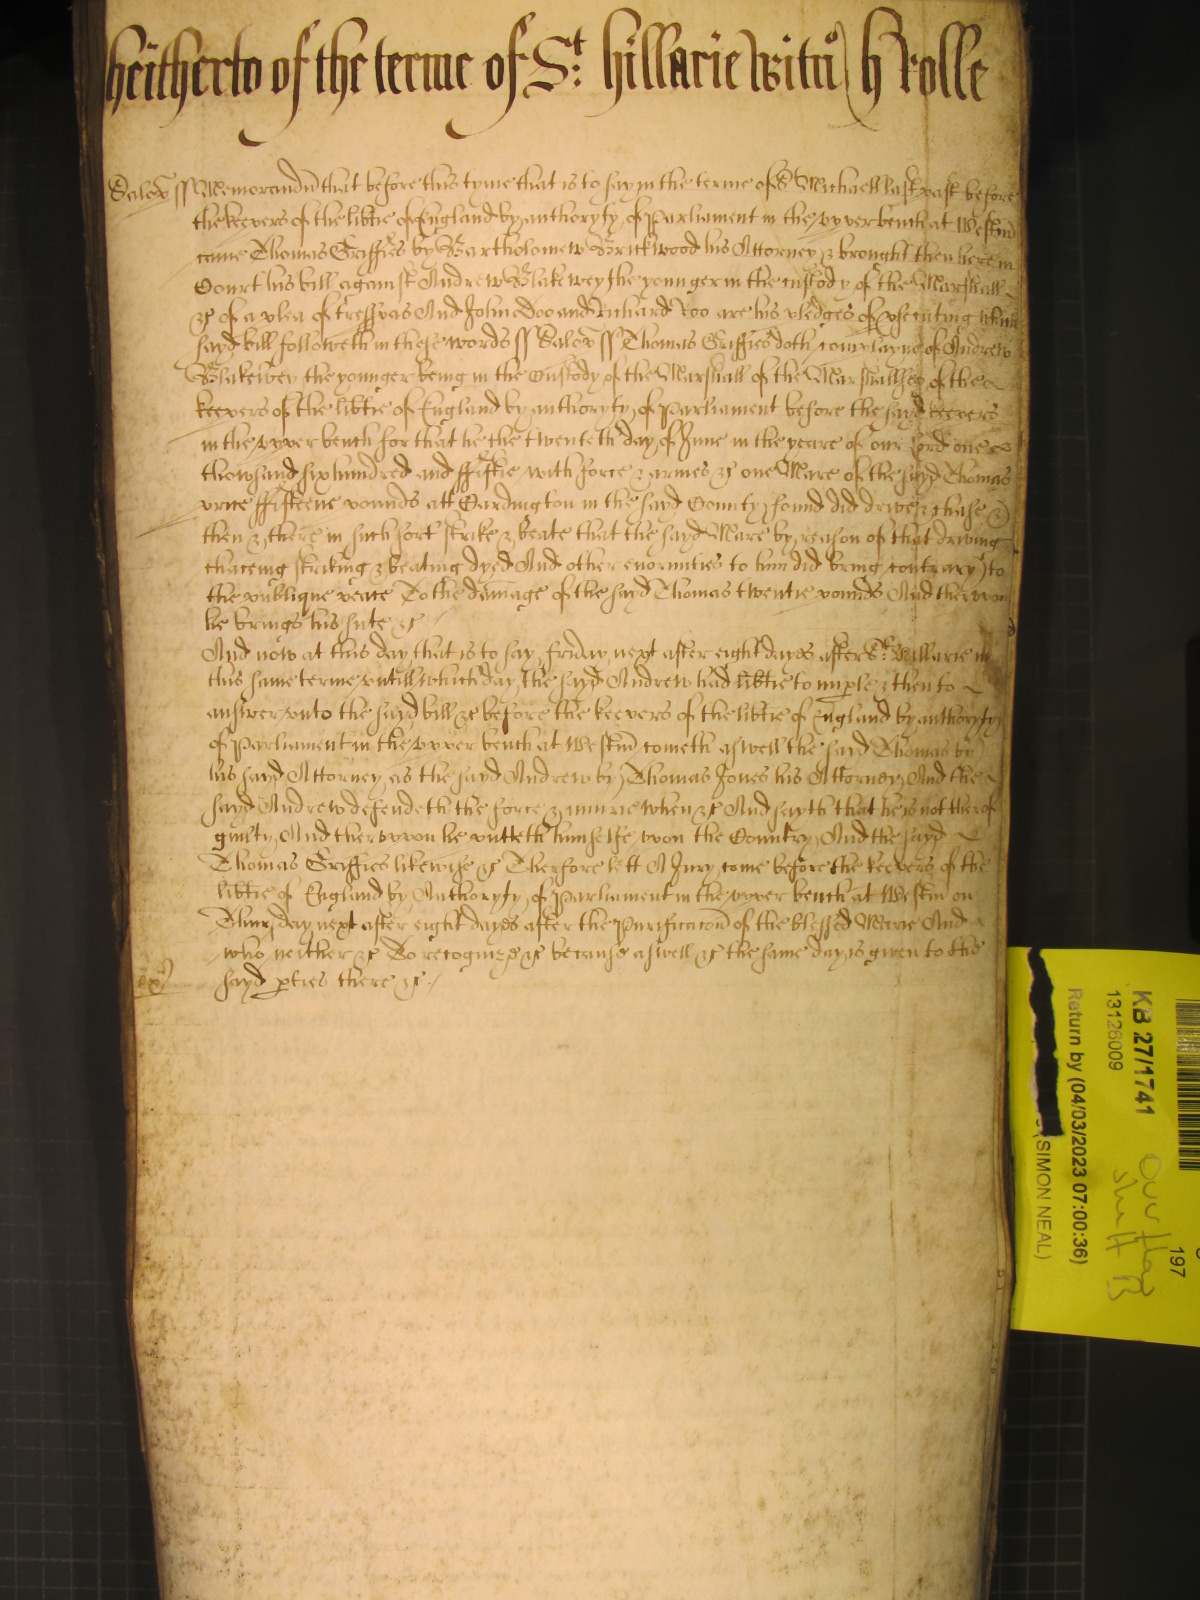 heitherto of the terme of St: hillarie witn) h Rolle
Salop ss Memorand that before this tyme that is to say in the terme of St Michaell last past before
the keepers of the libtie of England by authoryty of Parliament in the upper bench at Westm
came Thomas Griffies by Bartholomew Brickwood his Attorney & brought then here in
Court his bill against Andrew Blakewey the younger in the custody of the Marshall
&c of a plea of tresspas And John Doo and Richard Roo are his pledges of psecuting which
sayd bill followeth in these words ss Salop ss Thomas Griffies doth complayne of Andrew
Blakewey the younger being in the Custody of the Marshall of the Marshallsey of the
keepers of the libtie of England by authoryty of Parliament before the sayd keepers
in the upper bench for that he the twenteth day of June in the yeare of our Lord one
thowsand six hundred and ffiftie with force & armes &c one Mare of the sayd Thomas
price ffifteene pounds att Cardington in the sayd County found did drive & chase &
then & there in such sort strike & beate that the sayd Mare by reason of that driving
chaceing striking & beating dyed And other enormities to him did bring contrary to
the publique peace To the damage of the sayd Thomas twentie pounds And therupon
he brings his sute &c
And now at this day that is to say friday next after eight dayes after St: Hillarie in
this same terme untill which day the sayd Andrew had libtie to imple & then to
answer unto the sayd bill &c before the keepers of the libtie of England by authoryty
of Parliament in the upper bench at Westm cometh aswell the sayd Thomas by
his sayd Attorney as the sayd Andrew by Thomas Jones his Attorney And the
sayd Andrew defendeth the force & iniurie when &c And sayth that he is not therof
guilty And therupon he putteth himselfe upon the Country And the sayd
Thomas Griffies likewise &c Therfore lett A Jury come before the keepers of the
libtie of England by Authoryty of Parliament in the upper bench at Westm on
Thursday next after eight dayes after the Purificacon of the blessed Marie And
who neither &c To recognize &c because aswell &c the same day is given to the
sayd pties there &c
KB 27/1741
13126009
Return by (04/03/2023 07:00:36)
(SIMON NEAL)
197